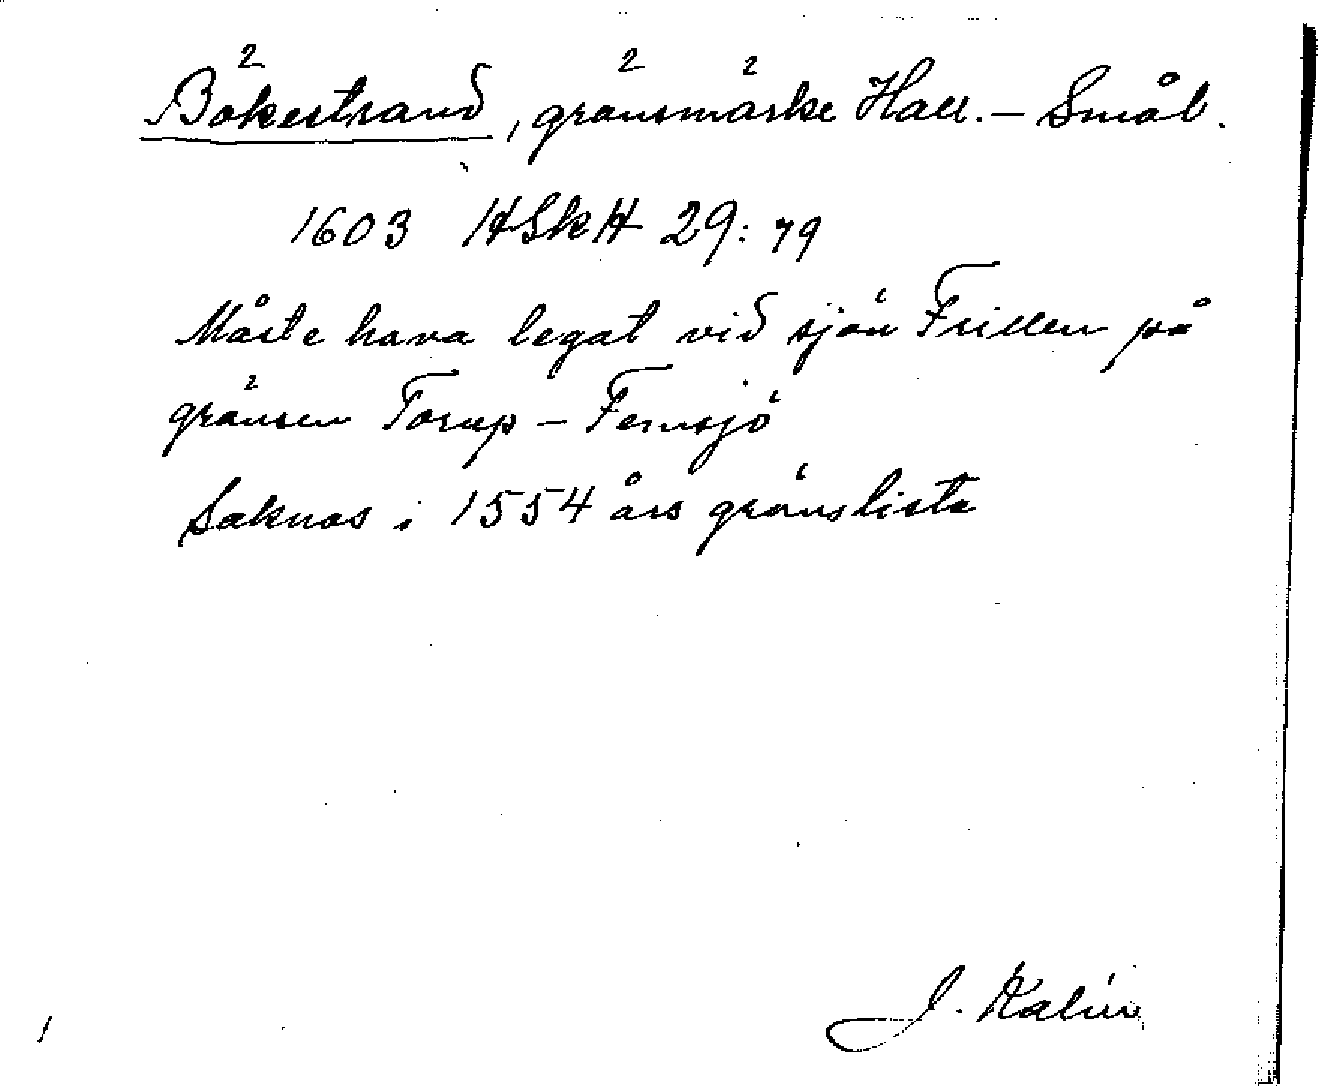 Bökestrand, gränsmärke Hall. – Smål.
1603 HSkH 29: 79
Måste hava legat vid sjön Frillen på
gränsen Torup – Femsjö
Saknas i 1554 års gränslista
J. Kalén